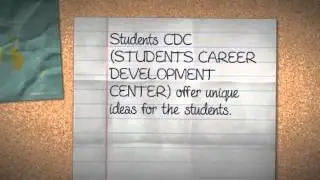 Students CDC
(STUDENTS CAREER
DEVELOPMENT
CENTER) offer unique
ideas for the students.